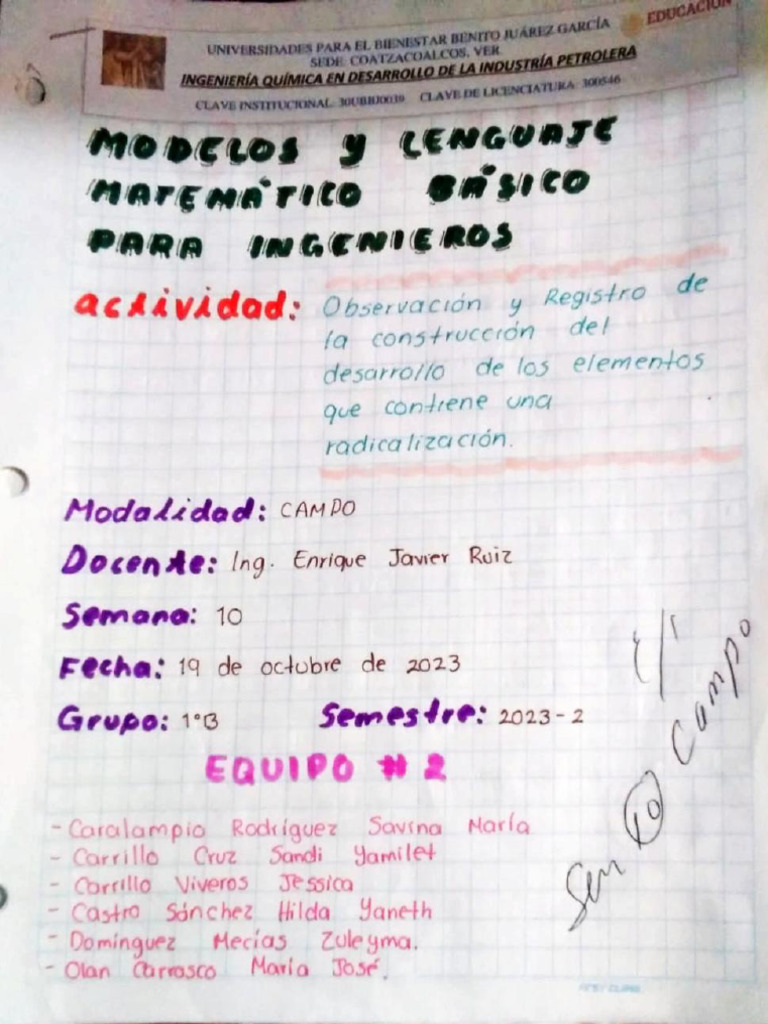 EDUCACIÓN
UNIVERSIDADES PARA EL BIENESTAR BENITO JUÁREZ GARCÍA
SEDE: COATZACOALCOS, VER
INGENIERÍA QUÍMICA EN DESARROLLO DE LA INDUSTRÍA PETROLERA
CLAVE INSTITUCIONAL: 30UBBJ0039 CLAVE DE LICENCIATURA: 300546
MODELOS Y LENGUAJE
MATEMÁTICO BÁSICO
PARA INGENIEROS
actividad: Observación y Registro de
la construcción del
desarrollo de los elementos
que contiene una
radicalización.
Modalidad: CAMPO
Docente: Ing. Enrique Javier Ruiz
Semana: 10
Fecha: 19 de octubre de 2023
Grupo: 1°B Semestre: 2023-2
EQUIPO # 2
- Caralampio Rodríguez Savina María
- Carrillo Cruz Sandi Yamilet
- Carrillo Viveros Jessica
- Castro Sánchez Hilda Yaneth
- Domínguez Mecías Zuleyma.
- Olan Carrasco María José.
Sem 10 Campo